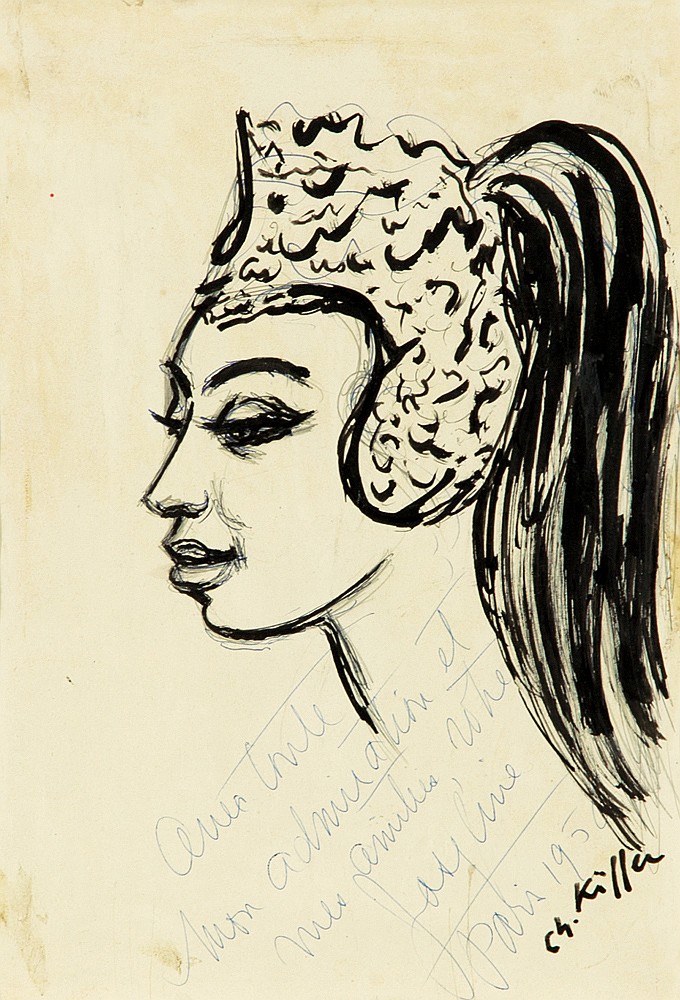 Avec toute
mon admiration et
mes amitiés votre
Joséphine
Paris 195
Ch. Kiffer